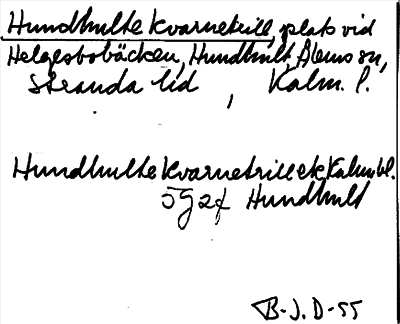 Hundhulte kvarnetrill, plats vid
Helgesbobäcken, Hundhult, Ålems sn,
Stranda hd, Kalm. l.
Hundhulte kvarnetrill ek Kalmar bl.
5g2f Hundhult
B-J. D-55